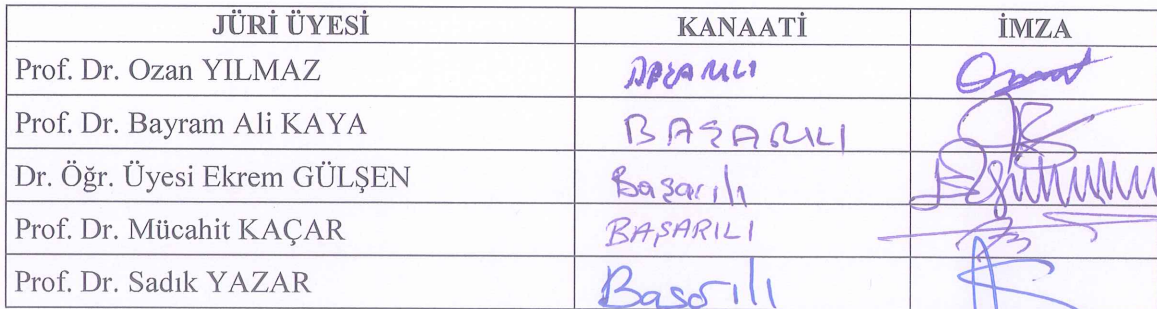 JÜRİ ÜYESİ KANAATİ İMZA
Prof. Dr. Ozan YILMAZ BAŞARILI
Prof. Dr. Bayram Ali KAYA BAŞARILI
Dr. Öğr. Üyesi Ekrem GÜLŞEN Başarılı
Prof. Dr. Mücahit KAÇAR BAŞARILI
Prof. Dr. Sadık YAZAR Başarılı